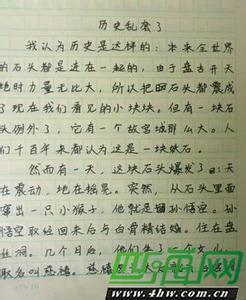 历史乱套了
我认为历史是这样的：本来全世界
的石头都是连在一起的，由于盘古开天
地时力量无比大，所以把石头都震成
了现在我们看见的小块块。但有一块石
头例外了，它有一个故宫城那么大。人
们千百年来都认为这是一块蚊石。
然而有一天，这块石头爆发了：天
在震动，地在摇晃。突然，从石头里面
蹦出一只小猴子，他就是猴孙悟空。孙
悟空取经回来后与白骨精结婚，住在盘
丝洞。几个月后，他们生了一个女儿，
取名叫慈禧。慈禧
四海网
www.4hw.com.cn